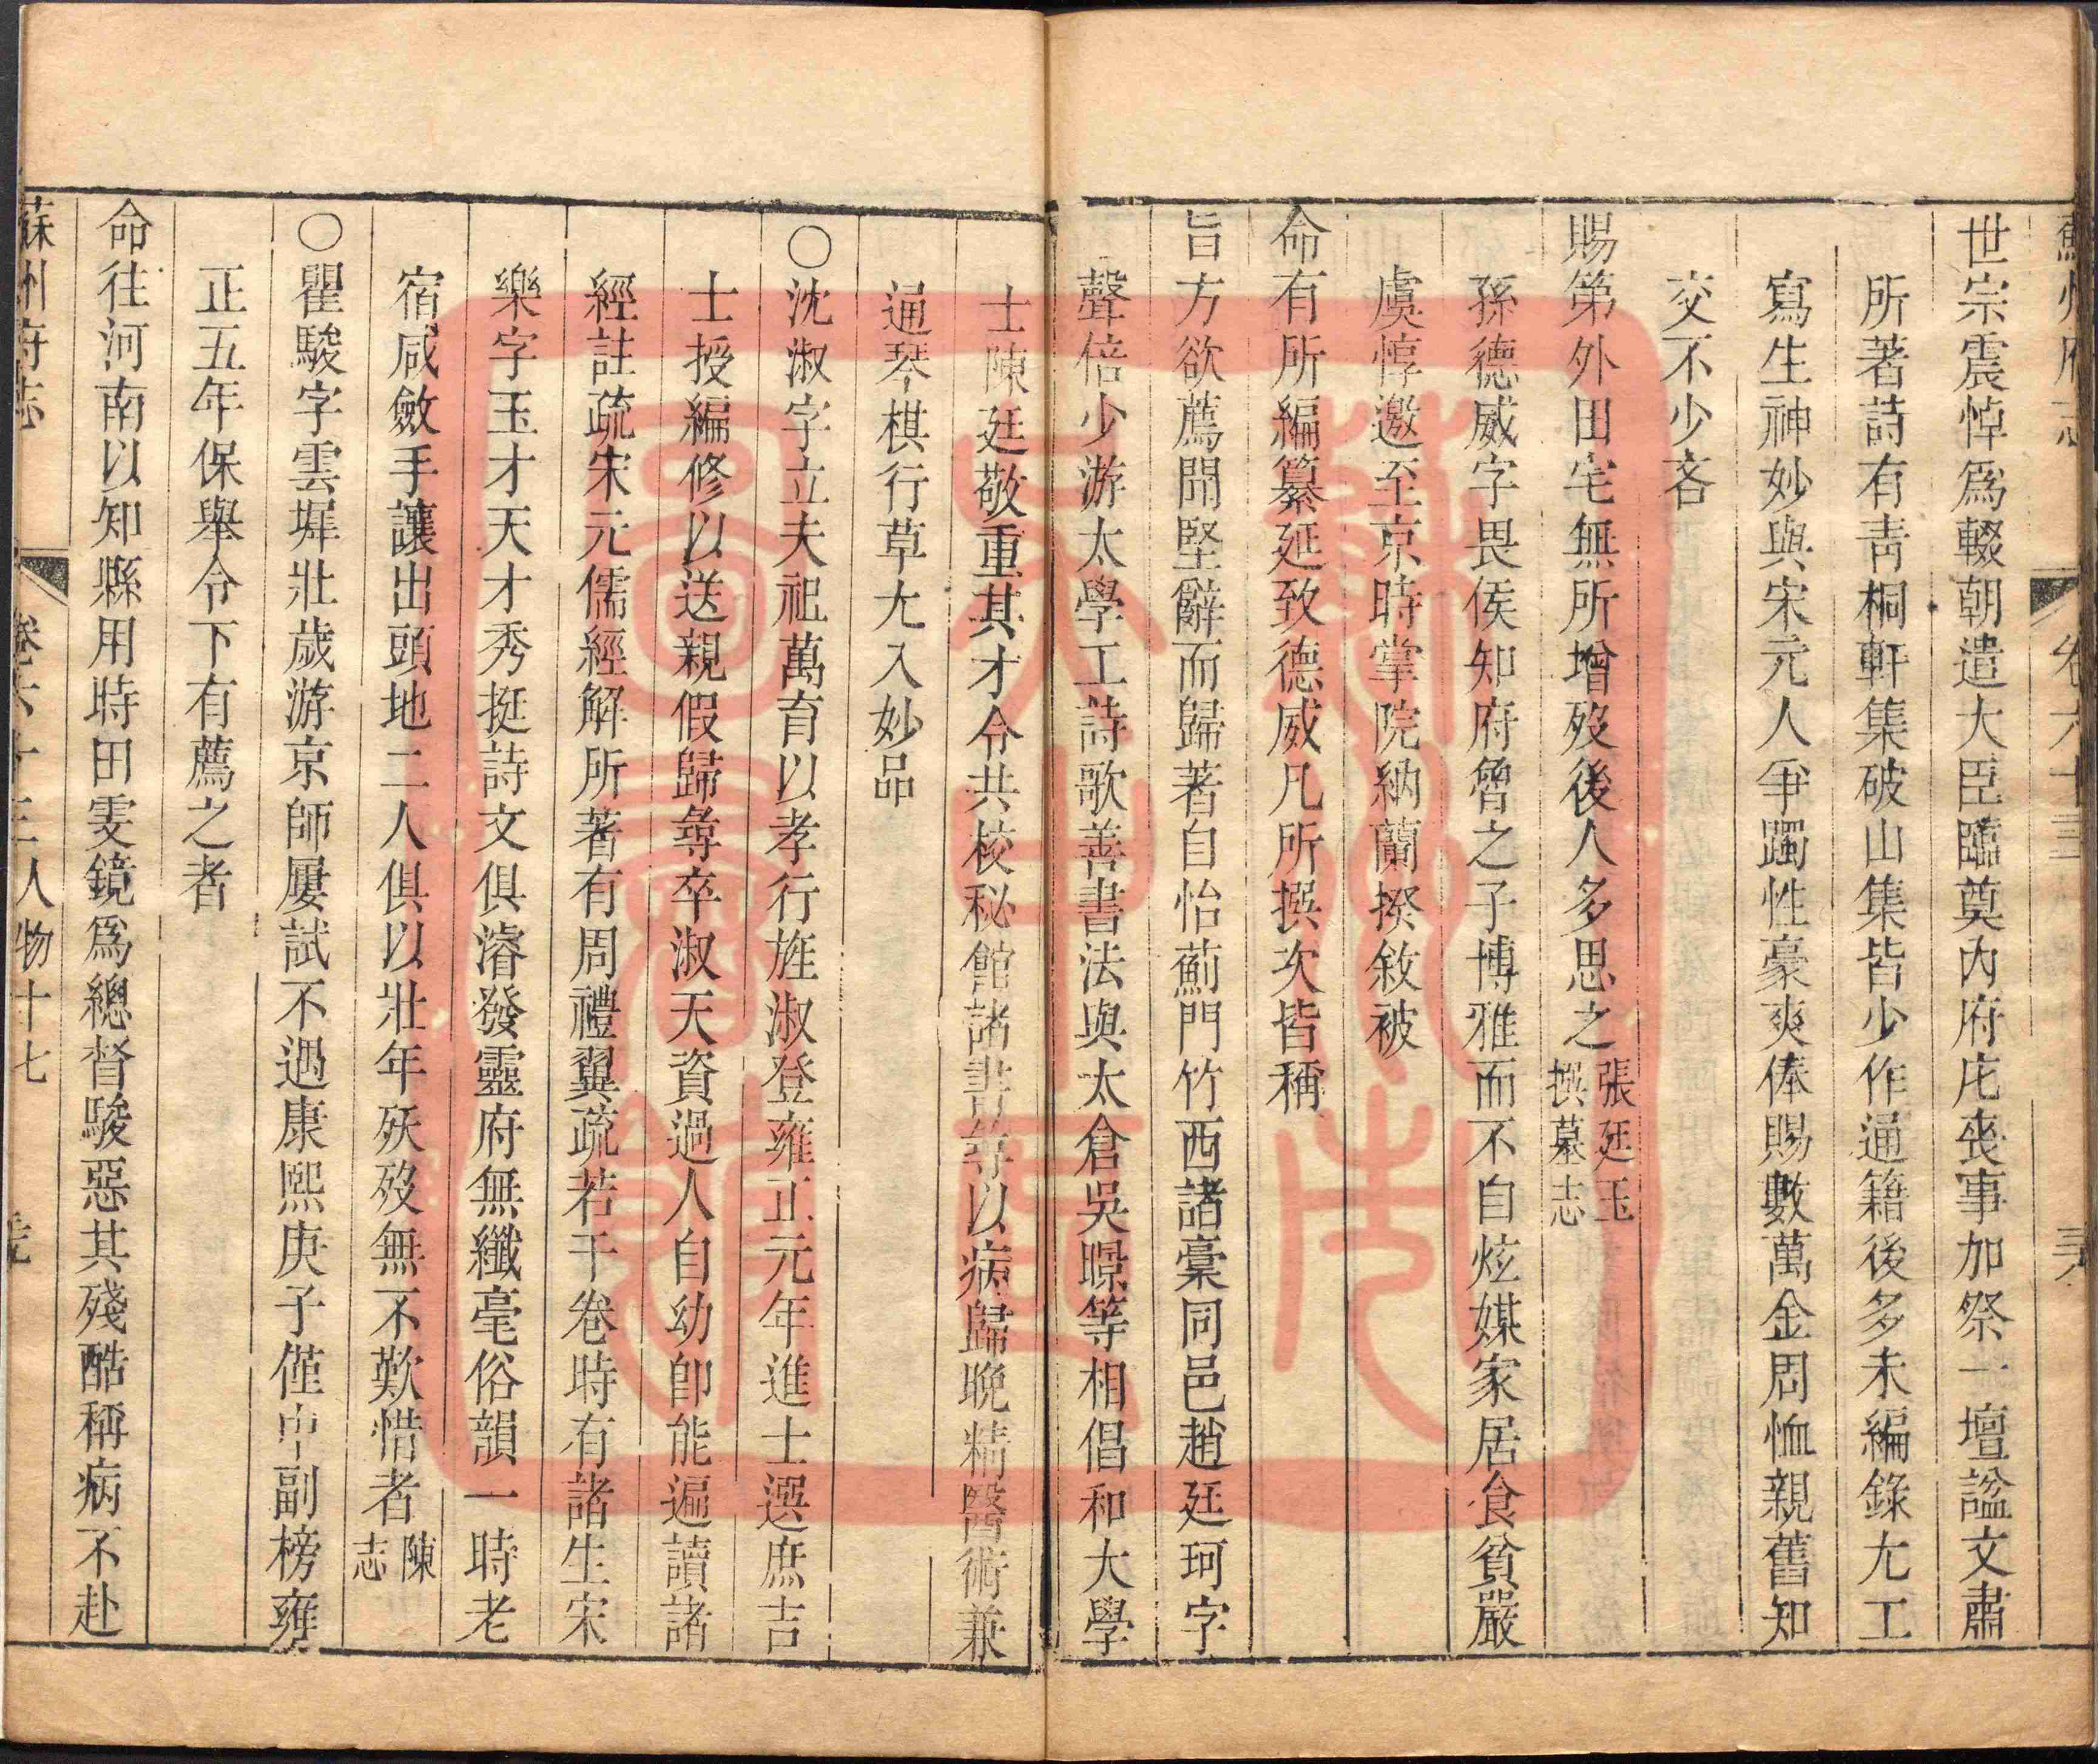 蘇州府志 卷六十三
世宗震悼爲輟朝遣大臣臨奠內府庀喪事加祭一壇諡文肅
所著詩有靑桐軒集破山集皆少作通籍後多未編錄尤工
寫生神妙與宋元人爭躅性豪爽俸賜數萬金周恤親舊知
交不少吝
賜第外田宅無所增歿後人多思之張廷玉撰墓志
孫德威字畏侯知府魯之子博雅而不自炫媒家居食貧嚴
虞惇邀至京時掌院納蘭揆敘被
命有所編纂延致德威凡所撰次皆稱
旨方欲薦聞堅辭而歸著自怡薊門竹西諸稾同邑趙廷珂字
聲倍少游太學工詩歌善書法與太倉吳暻等相倡和大學
士陳廷敬重其才令共校秘館諸書尋以病歸晚精醫術兼
通琴棋行草尤入妙品
〇沈淑字立夫祖萬育以孝行旌淑登雍正元年進士選庶吉
士授編修以送親假歸尋卒淑天資過人自幼卽能遍讀諸
經註疏宋元儒經解所著有周禮翼疏若干卷時有諸生宋
樂字玉才天才秀挺詩文俱濬發靈府無纖毫俗韻一時老
宿咸斂手讓出頭地二人俱以壯年殀歿無不歎惜者陳志
〇瞿駿字雲墀壯歲游京師屢試不遇康熙庚子僅中副榜雍
正五年保舉令下有薦之者
命往河南以知縣用時田雯鏡爲總督駿惡其殘酷稱病不赴
蘇州府志 卷六十三人物十七